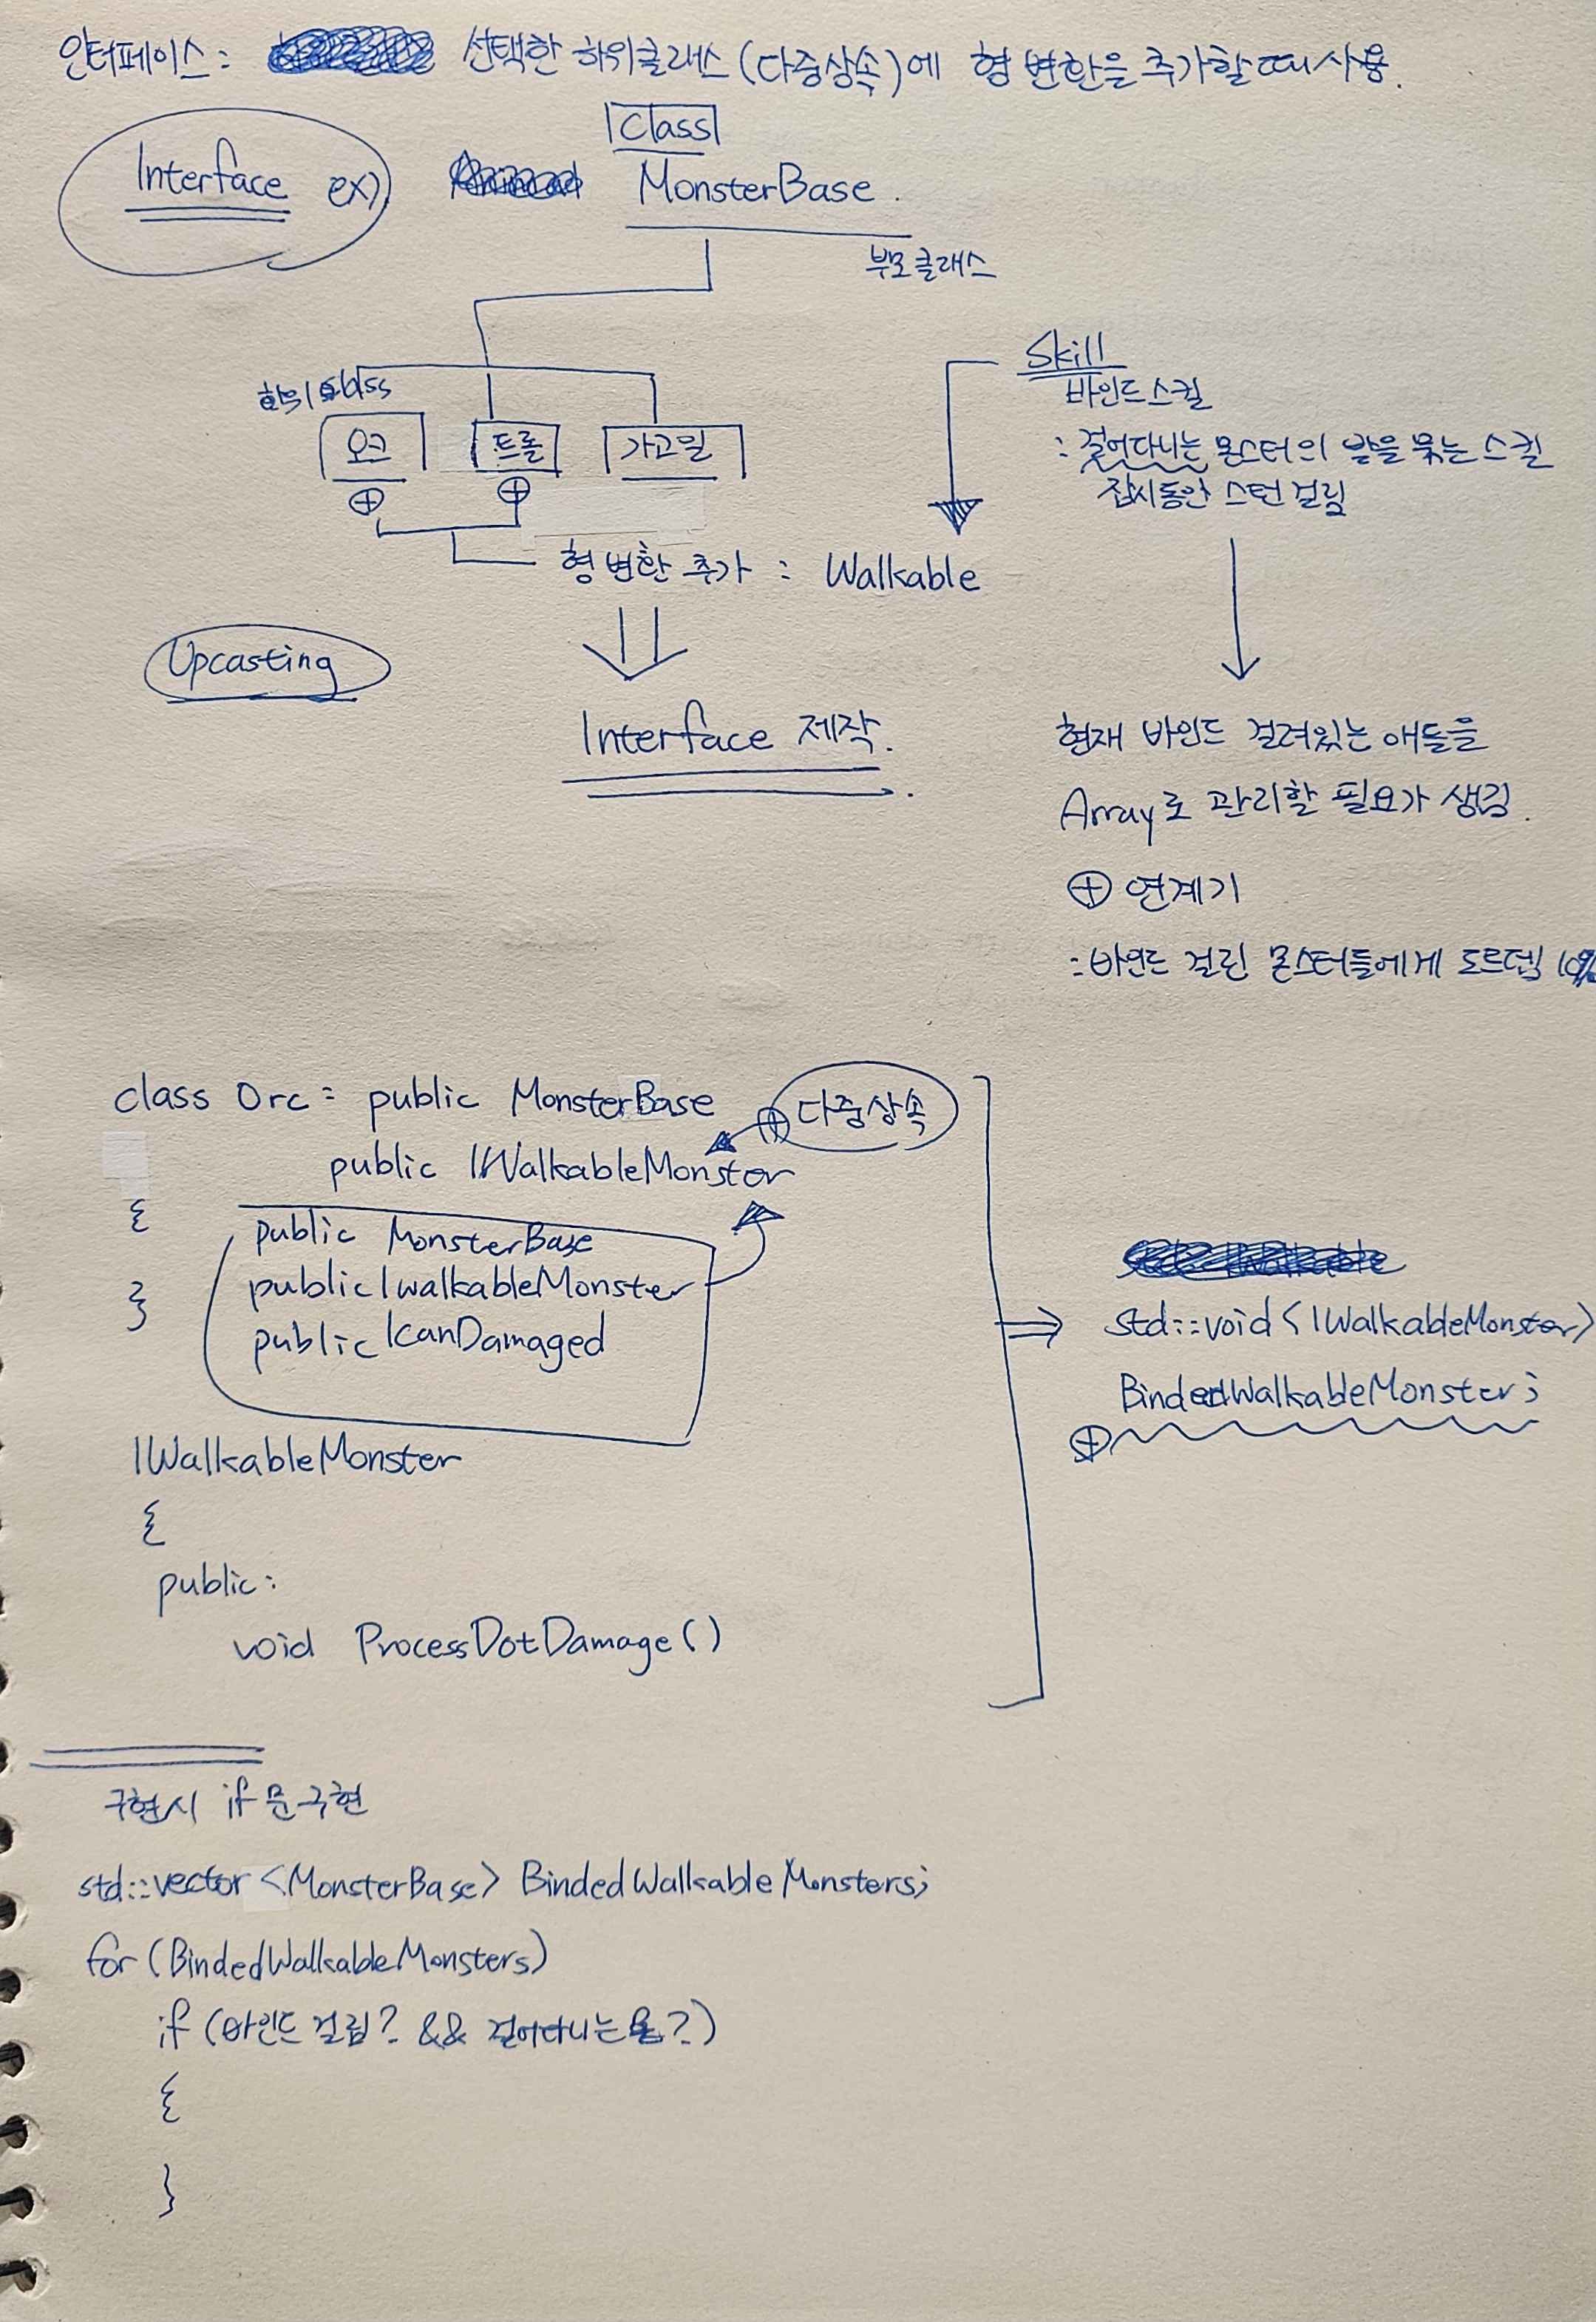 인터페이스 : 선택한 하위클래스 (다중상속)에 형 변환을 추가할때 사용.
Interface ex)
Class
MonsterBase.
부모클래스
하위 class
오크 트롤 가고일
⊕ ⊕
형 변환 추가 : Walkable
Skill
바인드스킬
: 걸어다니는 몬스터의 발을 묶는 스킬
잠시동안 스턴 걸림
Upcasting
Interface 제작.
현재 바인드 걸려있는 애들을
Array로 관리할 필요가 생김.
⊕ 연계기
: 바인드 걸린 몬스터들에게 도트뎀 10%
class Orc : public MonsterBase
⊕ 다중상속
public IWalkableMonster
{
public MonsterBase
public IwalkableMonster
public ICanDamaged
}
std::void<IWalkableMonster>
BindedWalkableMonster;
⊕
IWalkableMonster
{
public:
void ProcessDotDamage()
구현시 if문 구현
std::vector <MonsterBase> BindedWalkableMonsters;
for (BindedWalkableMonsters)
if (바인드 걸림? && 걸어다니는 ?)
{
}